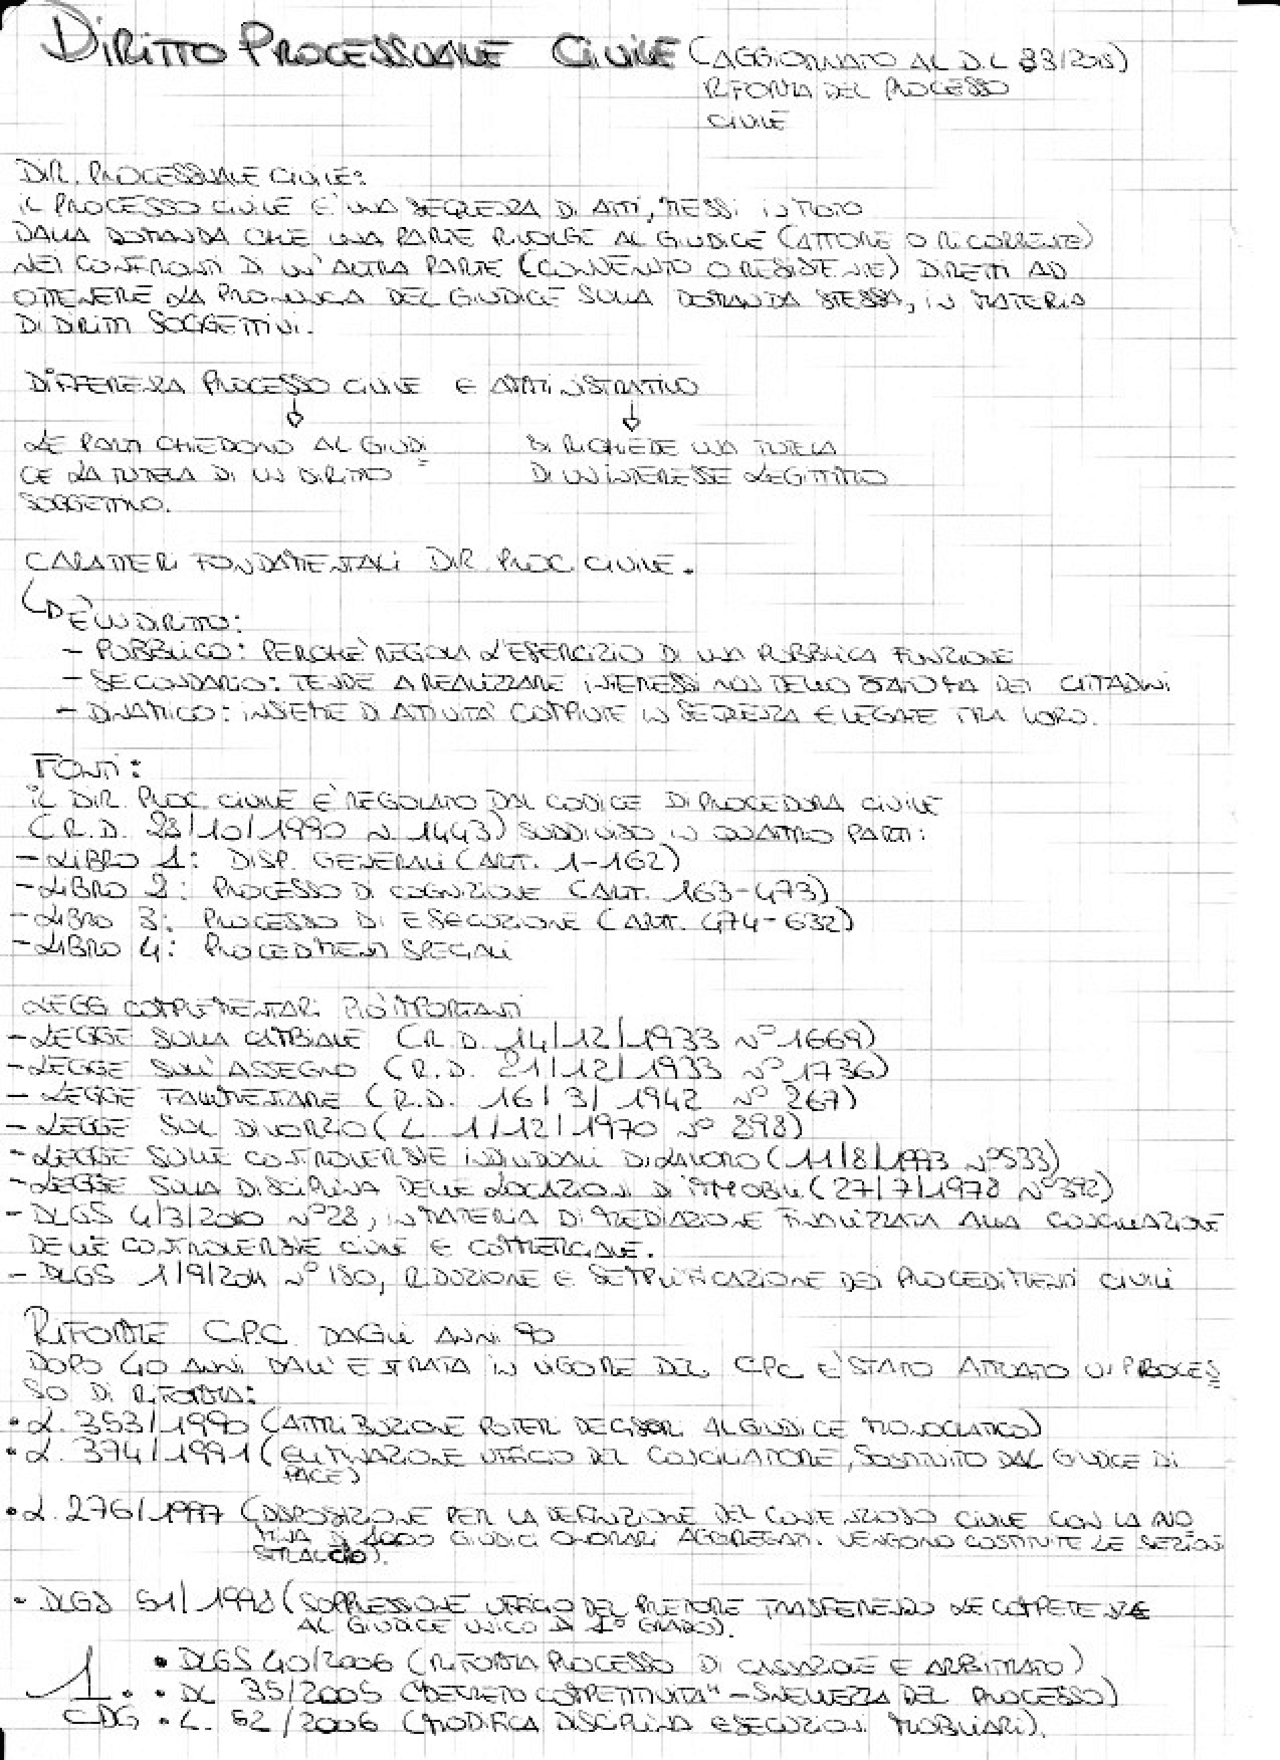 DIRITTO PROCESSUALE CIVILE (AGGIORNATO AL D.L 83/2015)
RIFORMA DEL PROCESSO
CIVILE
DIR. PROCESSUALE CIVILE:
IL PROCESSO CIVILE E' UNA SEQUENZA DI ATTI, MESSI IN MOTO
DALLA DOMANDA CHE UNA PARTE RIVOLGE AL GIUDICE (ATTORE O RICORRENTE)
NEI CONFRONTI DI UN'ALTRA PARTE (CONVENUTO O RESISTENTE) DIRETTI AD
OTTENERE LA PRONUNCIA DEL GIUDICE SULLA DOMANDA STESSA, IN MATERIA
DI DIRITTI SOGGETTIVI.
DIFFERENZA PROCESSO CIVILE E AMMINISTRATIVO
LE PARTI CHIEDONO AL GIUDI SI RICHIEDE UNA TUTELA
CE LA TUTELA DI UN DIRITTO DI UN INTERESSE LEGITTIMO
SOGGETTIVO.
CARATTERI FONDAMENTALI DIR. PROC. CIVILE.
E' UN DIRITTO:
- PUBBLICO: PERCHE' REGOLA L'ESERCIZIO DI UNA PUBBLICA FUNZIONE
- SECONDARIO: TENDE A REALIZZARE INTERESSI NON DELLO STATO MA DEI CITTADINI
- DINAMICO: INSIEME DI ATTIVITA' COMPIUTE IN SEQUENZA E LEGATE TRA LORO.
FONTI:
IL DIR. PROC. CIVILE E' REGOLATO DAL CODICE DI PROCEDURA CIVILE
(R.D. 28/10/1990 N. 1443) SUDDIVISO IN QUATTRO PARTI:
- LIBRO 1: DISP. GENERALI (ART. 1-162)
- LIBRO 2: PROCESSO DI COGNIZIONE (ART. 163-473)
- LIBRO 3: PROCESSO DI ESECUZIONE (ART. 474-632)
- LIBRO 4: PROCEDIMENTI SPECIALI
LEGGI COMPLEMENTARI PIÙ IMPORTANTI
- LEGGE SULLA CAMBIALE (R.D. 14/12/1933 N° 1669)
- LEGGE SULL'ASSEGNO (R.D. 21/12/1933 N° 1736)
- LEGGE FALLIMENTARE (R.D. 16/3/1942 N° 267)
- LEGGE SUL DIVORZIO (L 1/12/1970 N° 898)
- LEGGE SULLE CONTROVERSIE INDIVIDUALI DI LAVORO (11/8/1973 N° 533)
- LEGGE SULLA DISCIPLINA DELLE LOCAZIONI DI IMMOBILI (27/7/1978 N° 392)
- DLGS 4/3/2010 N° 28, IN MATERIA DI MEDIAZIONE FINALIZZATA ALLA CONCILIAZIONE
DELLE CONTROVERSIE CIVILI E COMMERCIALI.
- DLGS 1/9/2011 N° 150, RIDUZIONE E SEMPLIFICAZIONE DEI PROCEDIMENTI CIVILI
RIFORME C.P.C. DAGLI ANNI 90
DOPO 40 ANNI DALL'ENTRATA IN VIGORE DEL C.P.C. E' STATO ATTUATO UN PROCES
SO DI RIFORMA:
• L. 353/1990 (ATTRIBUZIONE POTERI DECISORI AL GIUDICE MONOCRATICO)
• L. 374/1991 (ELIMINAZIONE UFFICIO DEL CONCILIATORE, SOSTITUITO DAL GIUDICE DI
PACE)
• L. 276/1997 (DISPOSIZIONE PER LA DEFINIZIONE DEL CONTENZIOSO CIVILE CON LA NO
MINA DI 1000 GIUDICI ONORARI AGGREGATI. VENGONO COSTITUITE LE SEZIONI
STRALCIO).
• DLGS 51/1998 (SOPPRESSIONE UFFICIO DEL PRETORE TRASFERENDO LE COMPETENZE
AL GIUDICE UNICO DI 1° GRADO).
• DLGS 40/2006 (RIFORMA PROCESSO DI CASSAZIONE E ARBITRATO)
1. • DL 35/2005 ("DECRETO COMPETITIVITA'" - SNELLEZZA DEL PROCESSO)
CDG • L. 52/2006 (MODIFICA DISCIPLINA ESECUZIONI MOBILIARI).